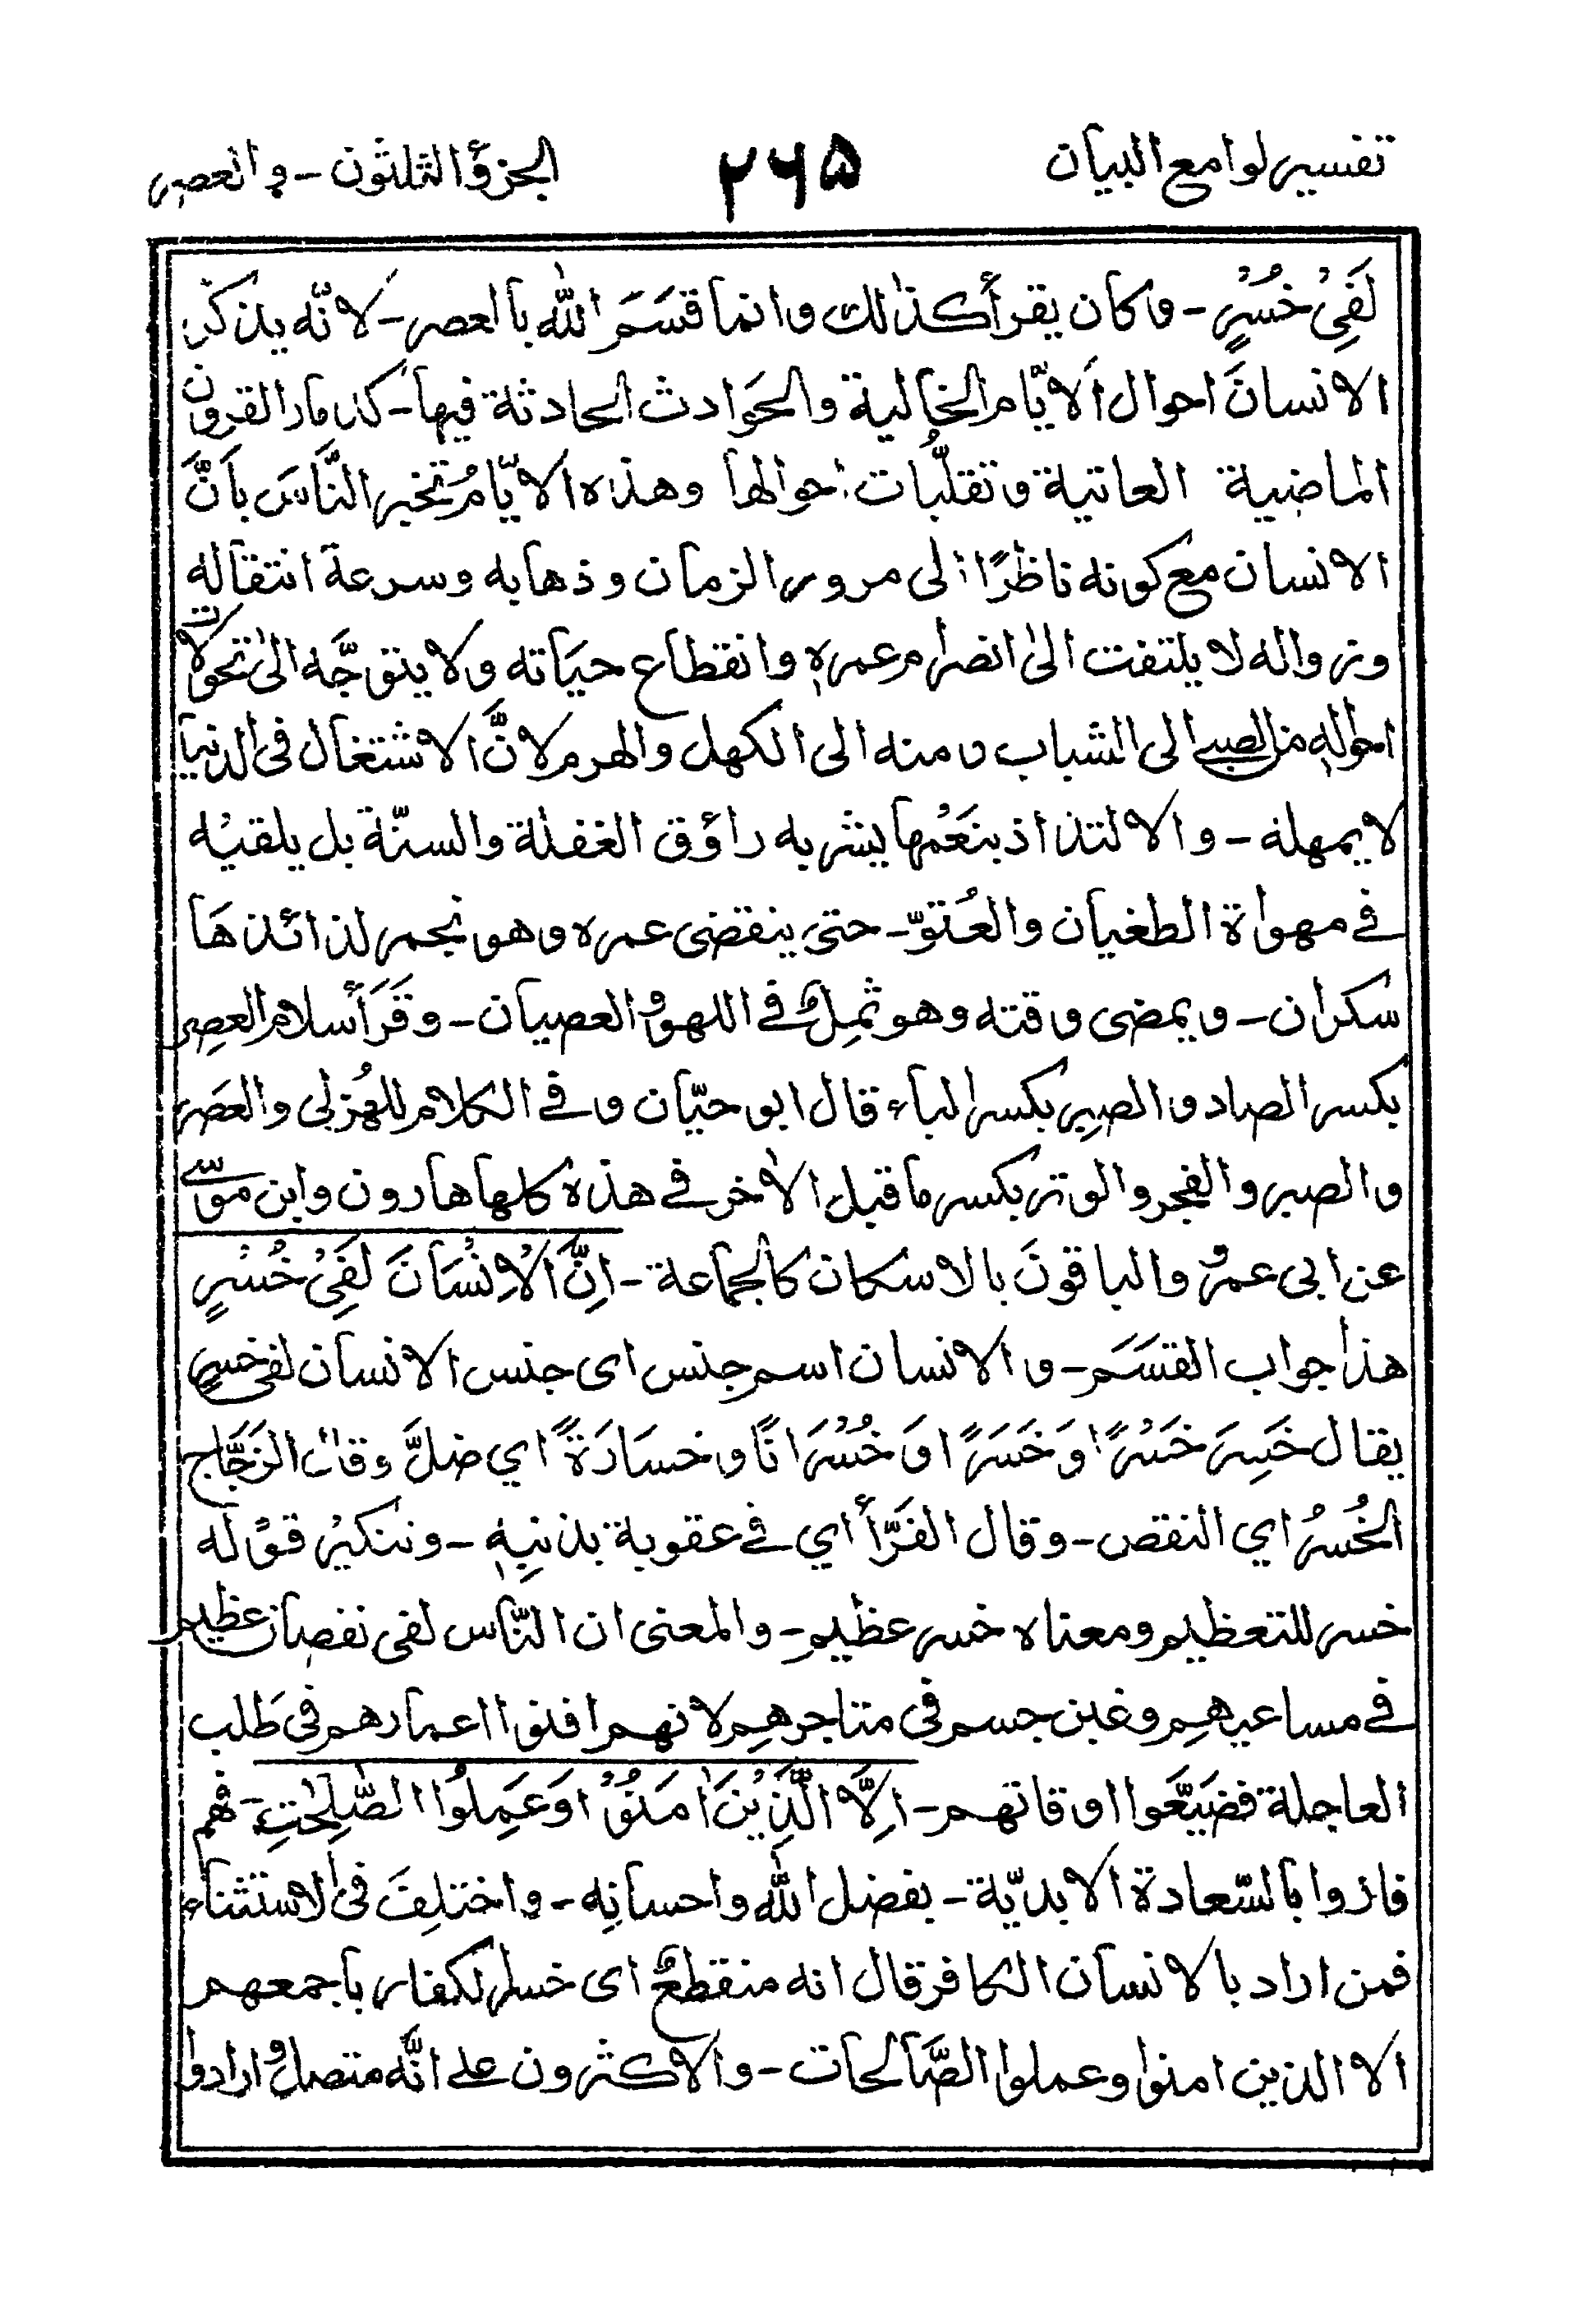 تفسیر لوامع البیان ۲۶۵ الجزؤ الثلثون - والعصر
لَفِیْ خُسْرٍ - وکان یقرأ کذالك وانما قَسَمَ اللّٰه بالعصر - لانّه یذکر
الانسانَ احوال الایّام الخالیة والحَوادث الحادثة فیها - کدمار القرون
الماضیة العاتیة وتقلُّبات احوالها وهذه الایّامُ تخبر النَّاسَ بانَّ
الانسان مع کونه ناظرًا الی مرور الزمان وذهابه وسرعة انتقاله
وزواله لا یلتفت الیٰ انضرام عمرهٖ وانقطاع حیَاته ولا یتوجَّه الیٰ تحوّلات
احوالهٖ من الصبی الی الشباب ومنه الی الکهل والهرم لانَّ الاشتغال فی الدنیا
لا یمهله - والالتذاذ بنَعْمها یشربه راؤق الغفلة والسنّة بل یلقیْه
فے مهواة الطغیان والعُتوّ - حتی ینقضی عمره وهو بخمر لذائذهَا
سکران - ویمضی وقته وهو ثمِلٌ فے اللهو والعصیان - وقَرَأ سلام العصِر
بکسر الصاد والصبِر بکسر الباء قال ابو حیّان وفے الکلام للهُزلی والعصَر
والصبر والفجر والوتر بکسر ما قبل الاٰخر فے هذه کلها هارون وابن موسیٰ
عن ابی عمرٌو والباقونَ بالاسکان کالجماعة - اِنَّ الْاِنْسَانَ لَفِیْ خُسْرٍ
هذا جواب القسَمَ - والانسان اسم جنس ای جنس الانسان لفی خسرٍ
یقال خَسِرَ خَسْرًا وَخَسَرًا اوَ خُسْرَانًا وخسَارَةً اي ضلَّ وقال الزَجَّاج
الخُسرُ اي النقص - وقال الفَرَّأ اي فے عقوبة بذنبِهٖ - وتنکیرُ قوله
خسر للتعظیم ومعناه خسر عظیم - والمعنی ان النّاس لفی نقصان عظیم
فے مساعیهِم وغبن جسم فی متاجرهِم لانهم افنوا اعمارهم فی طَلب
العاجلة فضَیَّعوا اوقاتهم - اِلَّا الَّذِیْنَ اٰمَنُوْا وَعَمِلُوا الصّٰلِحٰتِ - فهم
فازوا بالسّعادة الابدیّة - بفضل اللّٰه واحسانِه - واختلِفَ فی الاستثناء
فمن اراد بالانسان الکافر قال انه منقطعٌ ای خسر الکفار باجمعهم
الا الذین امنوا وعملوا الصَّالحات - والاکثرون علے انَّه متصل وارادوا